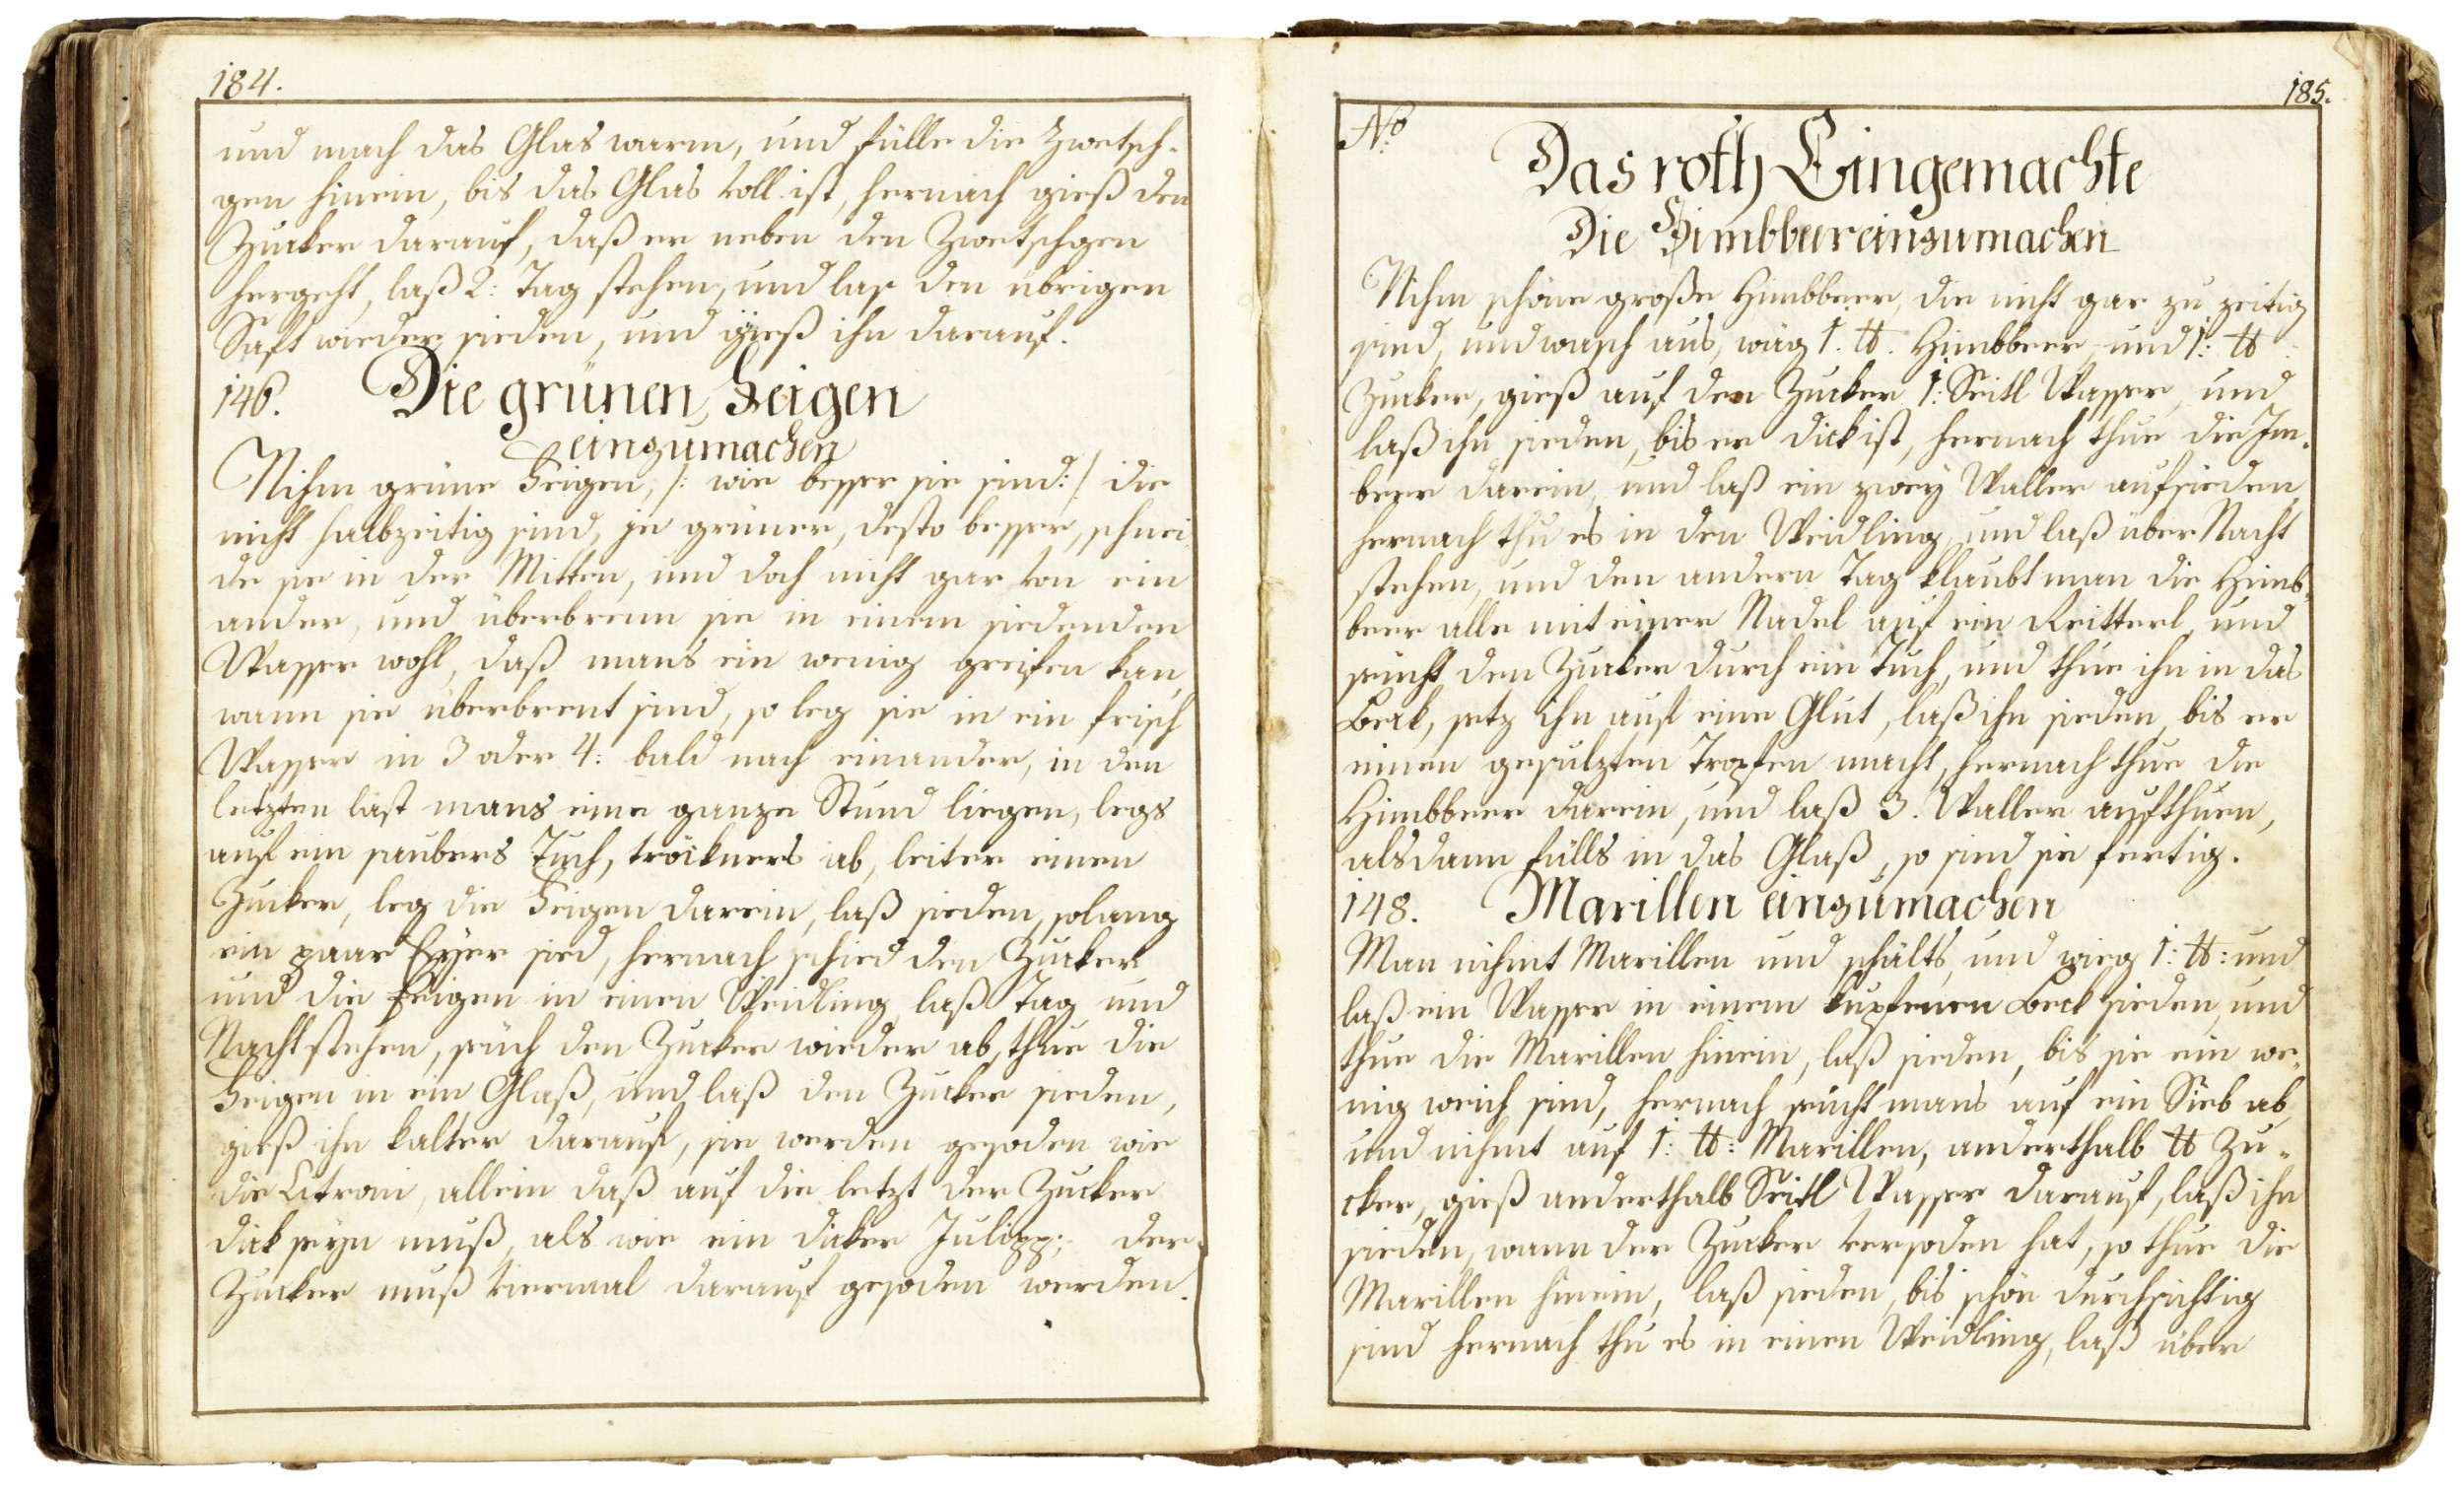 184.
und mach das Glas warm, und fülle die Zwetsch-
gen hinein, bis das Glas voll ist, hernach gieß den
Zucker darauf, daß er neben den Zwetschgen
hergeht, laß 2: Tag stehen, und laß den übrigen
Saft wieder sieden, und gieß ihn darauf.
146. Die grünen Feigen
einzumachen
Nihm grüne Feigen, /: wie besser sie sind :/ die
nicht halbzeitig sind, je grüner, desto besser, schnei
de sie in der Mitten, und doch nicht gar von ein
ander, und überbrenn sie in einem siedenden
Wasser wohl, daß mans ein wenig greifen kan,
wann sie überbrent sind, so leg sie in ein frisch
Wasser in 3 oder 4: bald nach einander, in den
letzten last mans eine ganze Stund liegen, legs
auf ein saubers Tuch, tröckners ab, leiter einen
Zucker, leg die Feigen darein, laß sieden, solang
ein paar Eyer sied, hernach schied den Zucker
und die Feigen in einen Weidling, laß Tag und
Nacht stehen, seüch den Zucker wieder ab, thue die
Feigen in ein Glaß, und laß den Zucker sieden,
gieß ihn kalter darauf, sie werden gesoden wie
die Citroni, allein daß auf die letzt der Zucker
dick seyn muß, als wie ein dicker Julipp; der
Zucker muß viermal darauf gesoden werden.
185.
No
Das roth Eingemachte
Die Himbbeer einzumachen
Nihm schöne große Himbbeer, die nicht gar zu zeitig
sind, und wasch aus, wäg 1. ℔. Himbbeer und 1: ℔
Zucker, gieß auf den Zucker 1: Seitl Wasser, und
laß ihn sieden, bis er dick ist, hernach thue die Im-
beer darein, und laß ein zwey Waller aufsieden,
hernach thu es in den Weidling, und laß über Nacht
stehen, und den andern Tag klaubt man die Himb-
beer alle mit einer Nadel auf ein Reitterl, und
seücht den Zucker durch ein Tuch, und thue ihn in das
Beck, setz ihn auf eine Glut, laß ihn sieden, bis er
einen gesulzten Tropfen macht, hernach thue die
Himbbeer darein, und laß 3. Waller aufthuen,
alsdann fülls in das Glaß, so sind sie fertig.
148. Marillen einzumachen
Man nihmt Marillen und schälts, und wieg 1: ℔: und
laß ein Wasser in einem kupfenen Beck sieden, und
thue die Marillen hinein, laß sieden, bis sie ein we-
nig weich sind, hernach seücht mans auf ein Sieb ab,
und nihmt auf 1: ℔: Marillen, anderthalb ℔ Zu-
cker, gieß anderthalb Seitl Wasser darauf, laß ihn
sieden, wann der Zucker versoden hat, so thue die
Marillen hinein, laß sieden, bis schön durchsichtig
sind hernach thu es in einen Weidling, laß über